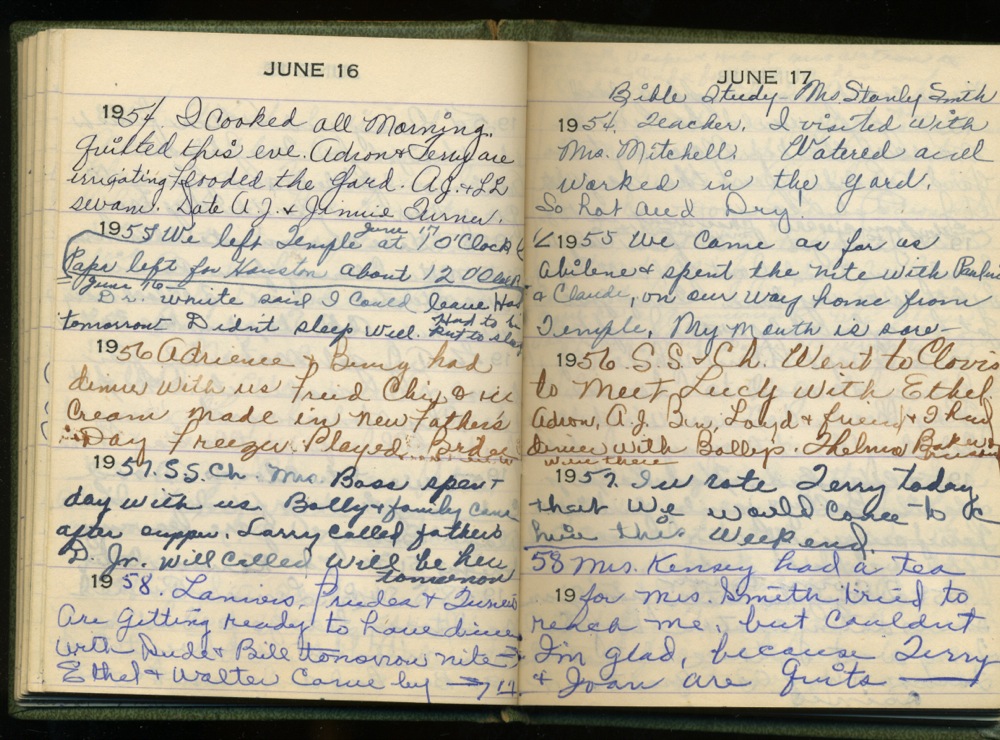 JUNE 16
1954 I Cooked all Morning.
Quilted this eve. Adron & Terry are
irrigating flooded the yard. A.J. & LL
swam. Date A.J. & Jimmie Turner.
June 17
1955 We left Temple at 1 O'Clock
Papa left for Houston about 12 00
June 16
Dr. White said I could leave
tomorrow Didn't sleep well. Had to
1956 Adrience & Bung had
dinner with us Fried Chix &
Cream made in new Father's
Day Freezer. Played
1957. S.S. Ch. Mrs. Bass spent
day with us. Bolly & family
after supper. Larry called father's
D. Jr. will called will be
tomorrow
1958. Prudes &
are getting ready to have
with Dude & Bill tomorrow nite
Ethel & Walter came by → 17
JUNE 17
Bible Study Mrs Stanly Smith
1954. Teacher. I visited with
Mrs. Mitchell. Watered and
worked in the yard.
So hot and Dry.
1955 We came as far as
Abilene & spent the nite with
& Claude, on our way home from
Temple, My mouth is sore-
1956. S.S. & Ch. Went to Clovis
to Meet Lucy With Ethel
Adron, A.J. Loyd & friend & I had
dinner with Bollys. Thelma
were there
1957. wrote Terry today
that We would come to
this Weekend.
58 Mrs. Kensey had a tea
19 for Mrs. Smith tried to
reach me, but couldn't
I'm glad, because Terry
& Joan are Quits —